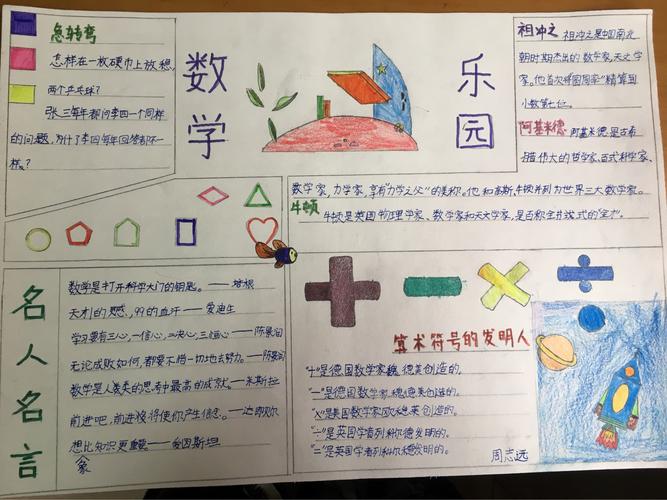 急转弯
怎样在一枚硬币上放稳
两个乒乓球？
张三每年都问李四一个同样
的问题，为什么李四每年回答都不一
样？
数学
乐园
祖冲之 祖冲之是中国南北
朝时期杰出的数学家，天文学
家。他首次将圆周率精算到
小数第七位。
阿基米德 阿基米德是古希
腊伟大的哲学家、百式科学家、
数学家，力学家，享有"力学之父"的美称。他和高斯、牛顿并列为世界三大数学家。
牛顿 牛顿是英国物理学家、数学家和天文学家，是百科全书式的"全才"。
名人名言
数学是打开科学大门的钥匙。——培根
天才1的灵感，99的血汗——爱迪生
学习要有三心，一信心，二决心，三恒心——陈景润
无论成败如何，都要不惜一切地去努力。——陈景润
数学是人类的思考中最高的成就。——米斯拉
前进吧，前进将使你产生信念。——达朗贝尔
想象比知识更重要。——爱因斯坦
算术符号的发明人
"+"是德国数学家魏德美创造的。
"-"是德国数学家魏德美创造的。
"×"是英国数学家欧德莱创造的。
"÷"是英国学者列科尔德发明的。
"="是英国学者列科尔德发明的。
周志远